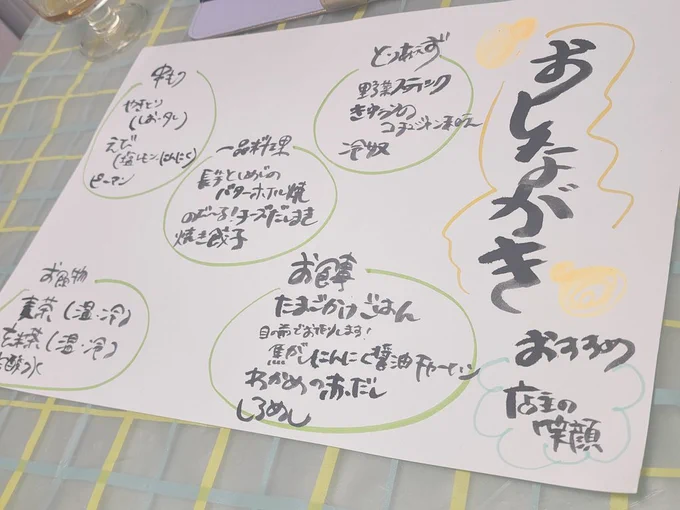 おしながき
おすすめ
店主の
笑顔
とりあえず
野菜スティック
きゅうりの
コチュジャン和え
冷奴
一品料理
長芋としめじの
バターホイル焼
のび〜る!チーズだしまき
焼き餃子
串もの
やきとり
(しお・タレ)
えび
(塩レモン・にんにく)
ピーマン
お食事
たまごかけごはん
目の前でお作りします!
焦がしにんにく醤油チャーハン
わかめの赤だし
しろめし
お飲物
麦茶(温・冷)
玄米茶(温・冷)
酸水